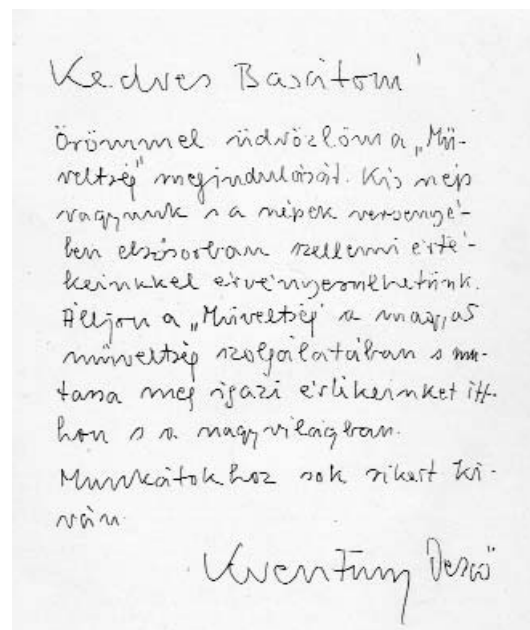 Kedves Barátom!
Örömmel üdvözlöm a „Mű-
veltség" megindulását. Kis nép
vagyunk s a népek versenyé-
ben elsősorban szellemi érté-
keinkkel érvényesülhetünk.
Álljon a „Műveltség" a magyar
műveltség szolgálatában s mu-
tassa meg igazi értékeinket itt-
hon s a nagyvilágban.
Munkátokhoz sok sikert kí-
ván
Keresztury Dezső